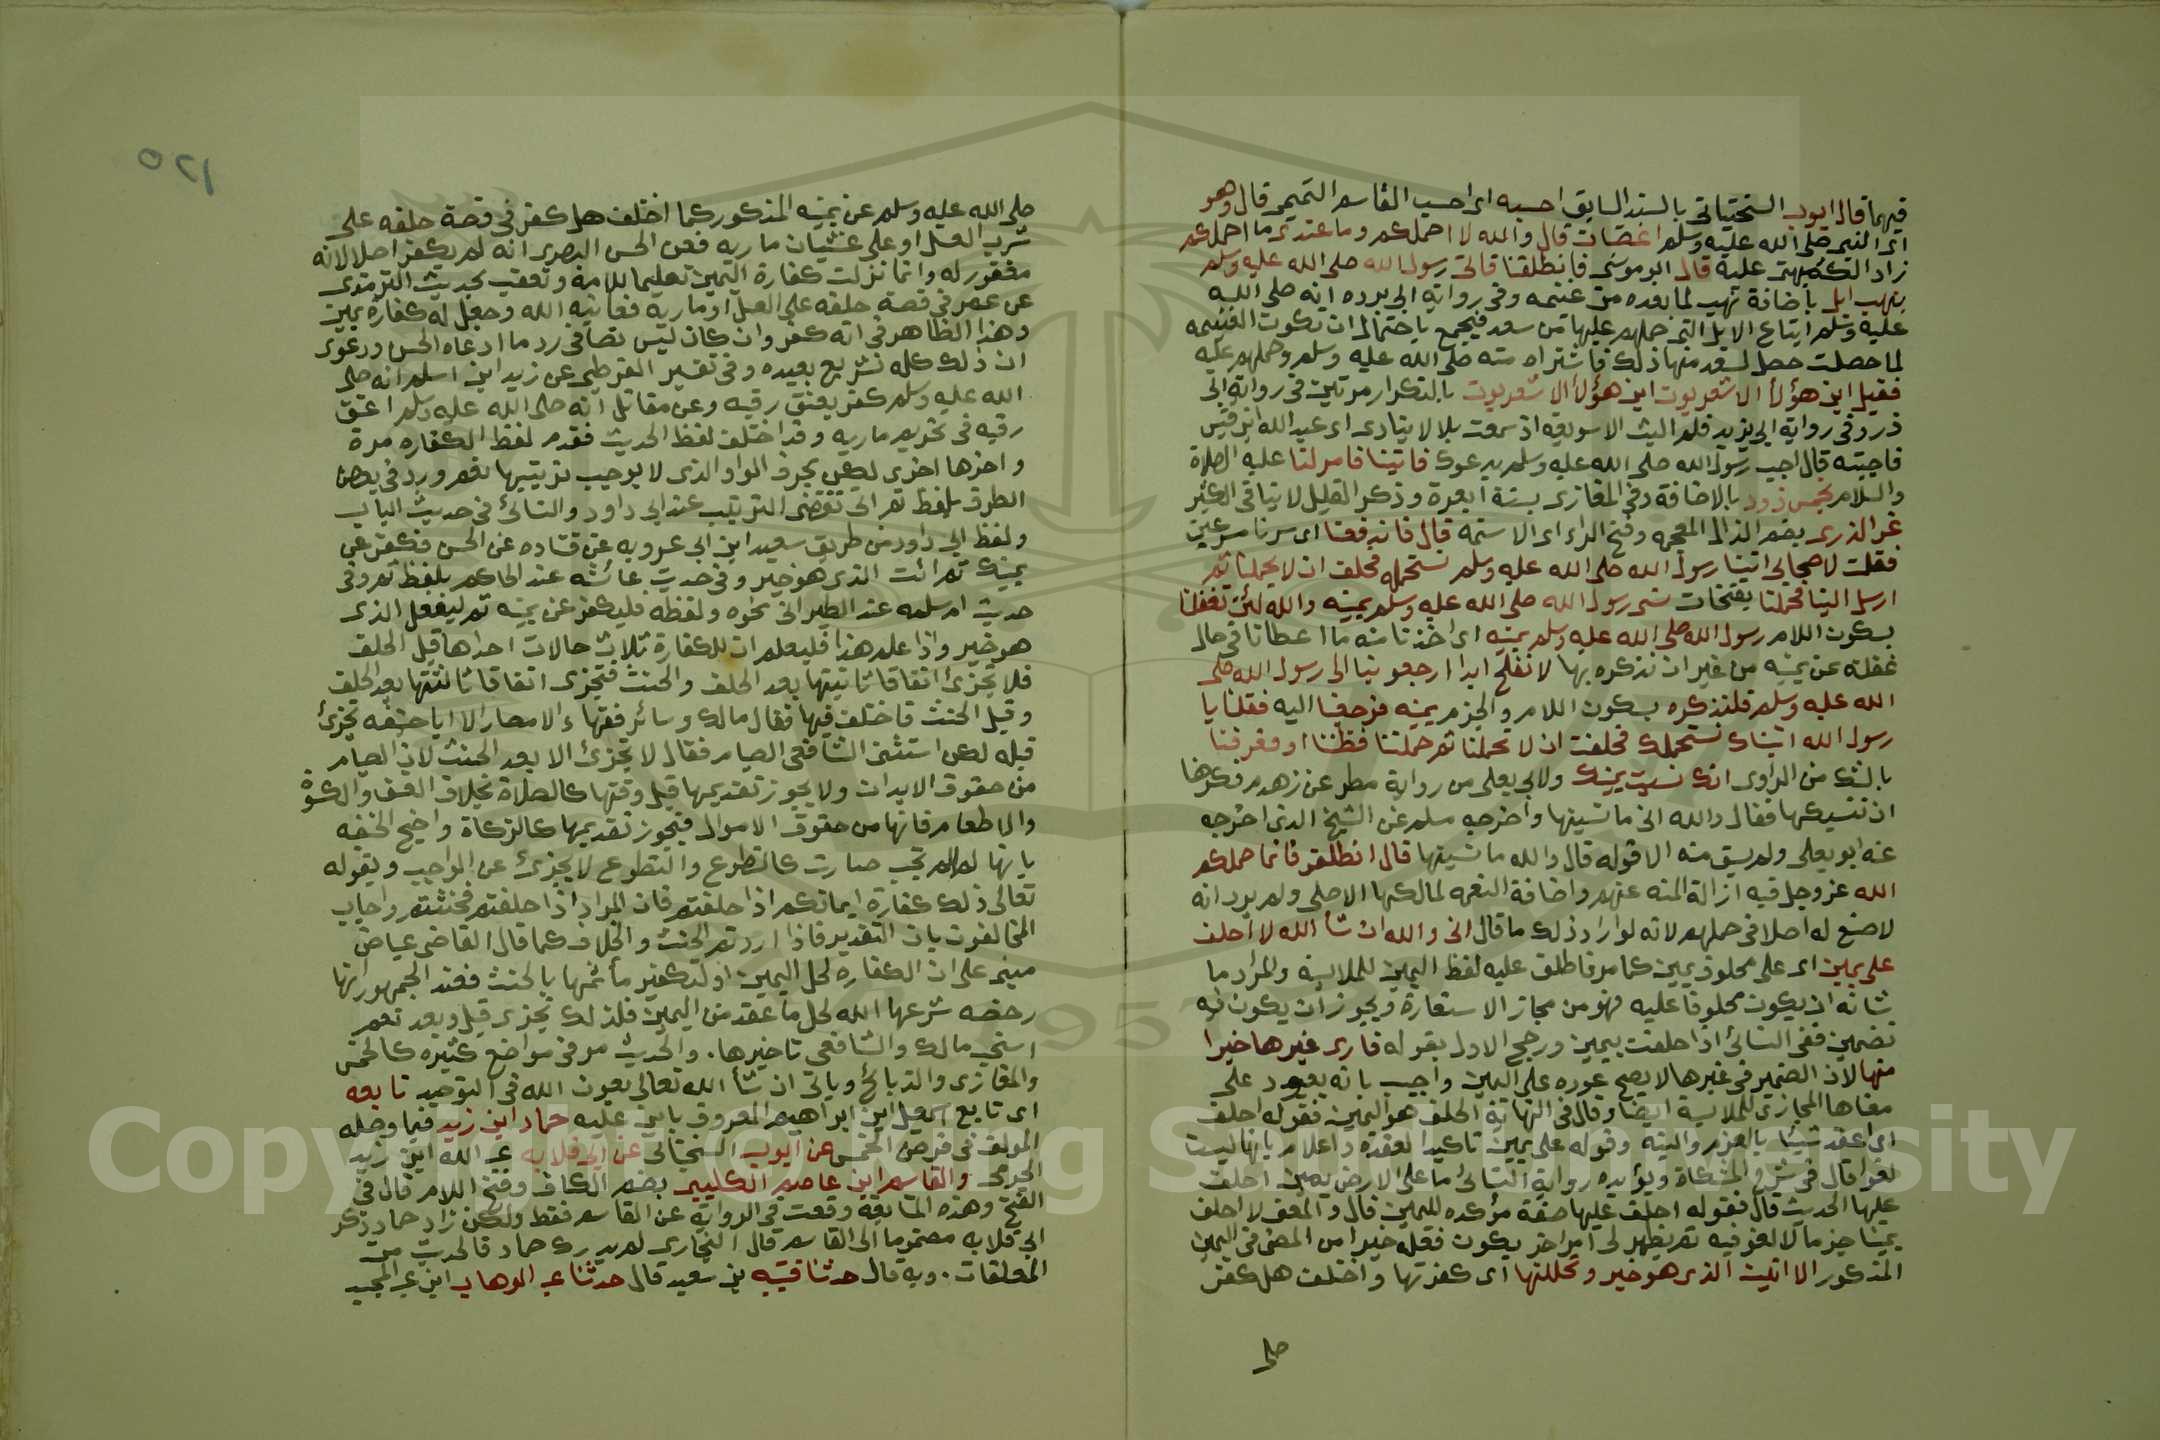 فيهما قال ايوب السختياني بالسند السابق احسبه اى احسب القاسم التميمي قال وهو
اى النبي صلى الله عليه وسلم غضبان قال والله لا احملكم وما عندى ما احملكم
زاد الكشميهني عليه قال ابو موسى فانطلقنا فاتى رسول الله صلى الله عليه وسلم
بنهب ابل باضافة نهب لما بعده من غنيمه وفى رواية ابى برده انه صلى الله
عليه وسلم ابتاع الابل التى حملهم عليها من سعد فيجمع باحتمال ان تكون الغنيمه
لما حصلت حصل لسعد منها ذلك فاشتراه منه صلى الله عليه وسلم وحملهم عليه
فقيل اين هؤلأ الاشعريون اين هؤلأ الاشعريون بالتكرار مرتين فى رواية ابى
ذر وفى رواية ابى يزيد فلم البث الا سويعه اذ سمعت بلالا ينادى اى عبد الله ابن قيس
فاجبته قال اجب رسول الله صلى الله عليه وسلم يدعوك فاتينا فامر لنا عليه الصلاة
والسلام بخمس ذود بالاضافة وفى المغازى بستة ابعرة وذكر القليل لا ينافى الكثير
غر الذرى بضم الذال المعجمه وفتح الراء اى الاسنمه قال فاندفعنا اى سرنا مسرعين
فقلت لاصحابى اتينا رسول الله صلى الله عليه وسلم نستحمله فحلف ان لا يحملنا ثم
ارسل الينا فحملنا بفتحات نسى رسول الله صلى الله عليه وسلم يمينه والله لئن تغفلنا
بسكون اللام رسول الله صلى الله عليه وسلم يمينه اى اخذنا منه ما اعطانا فى حال
غفلته عن يمينه من غير ان نذكره بها لا نفلح ابدا ارجعوا بنا الى رسول الله صلى
الله عليه وسلم فلنذكره بسكون اللام والجزم يمينه فرجعنا اليه فقلنا يا
رسول الله اتيناك نستحملك فحلفت ان لا تحملنا ثم حملتنا فظننا او فعرفنا
بالشك من الراوى انك نسيت يمينك ولابى يعلى من رواية مطر عن زهدم فكرهنا
ان ننسيكها فقال والله انى ما نسيتها واخرجه مسلم عن الشيخ الذى اخرجه
عنه ابو يعلى ولم يسق منه الا قوله قال والله ما نسيتها قال انطلقوا فانما حملكم
الله عز وجل فيه ازالة المنه عنهم واضافة النعمه لمالكها الاصلى ولم يرد انه
لا صنع له اصلا فى حملهم لانه لو اراد ذلك ما قال انى والله ان شأ الله لا احلف
على يمين اى على محلوف يمين كما مر فاطلق عليه لفظ اليمين للملابسة والمراد ما
شانه ان يكون محلوفا عليه فهو من مجاز الاستعارة ويجوز ان يكون فيه
تضمين ففى النسائى اذا حلفت بيمين ورجح الاول بقوله فارى غيرها خيرا
منها لان الضمير فى غيرها لا يصح عوده على اليمين واجيب بانه يعود على
معناها المجازى للملابسة ايضا وقال فى النهاية الحلف هو اليمين فقوله احلف
اى اعقد شيئا بالعزم والنية وقوله على يمين تاكيدا لعقده واعلام بانها ليست
لغوا قال فى شرح المشكاة ويؤيده رواية النسائى ما على الارض يمين احلف
عليها الحديث قال فقوله احلف عليها صفة مؤكده لليمين قال والمعنى لا احلف
يمينا جزما لا لغو فيه ثم يظهر لى امر اخر يكون فعله خيرا من المضى فى اليمين
المذكور الا اتيت الذى هو خير وتحللتها اى كفرتها واختلف هل كفر
صلى
٥٢١
صلى الله عليه وسلم عن يمينه المذكور كما اختلف هل كفر فى قصة حلفه على
شرب العسل او على غشيان ماريه فعن الحسن البصرى انه لم يكفر اصلا لانه
مغفور له وانما نزلت كفارة اليمين تعليما للامة وتعقب بحديث الترمذى
عن عمر فى قصة حلفه على العسل او ماريه فعاتبه الله وجعل له كفارة يمين
وهذا الظاهر فى انه كفر وان كان ليس نصا فى رد ما ادعاه الحسن ودعوى
ان ذلك كله تشريع بعيده وفى تفسير القرطبى عن زيد ابن اسلم انه صلى
الله عليه وسلم كفر بعتق رقبه وعن مقاتل انه صلى الله عليه وسلم اعتق
رقبه فى تحريم ماريه وقد اختلف لفظ الحديث فقدم لفظ الكفاره مرة
واخرها اخرى لكن بحرف الواو الذى لا يوجب ترتيبها نعم ورد فى بعض
الطرق بلفظ ثم التى تقتضى الترتيب عند ابى داود والنسائى فى حديث الباب
ولفظ ابى داود من طريق سعيد ابن ابى عروبه عن قتاده عن الحسن فكفر عن
يمينك ثم ائت الذى هو خير وفى حديث عائشه عند الحاكم بلفظ ثم وفى
حديث ام سلمه عند الطبرانى نحوه ولفظه فليكفر عن يمينه ثم ليفعل الذى
هو خير واذا علم هذا فليعلم ان للكفارة ثلاث حالات احداها قبل الحلف
فلا تجزئ اتفاقا ثانيتها بعد الحلف والحنث فتجزى اتفاقا ثالثتها بعد الحلف
وقبل الحنث فاختلف فيها فقال مالك وسائر فقهاء الامصار الا ابا حنيفه تجزئ
قبله لكن استثنى الشافعى الصيام فقال لا تجزئ الا بعد الحنث لان الصيام
من حقوق الابدان ولا يجوز تقديمها قبل وقتها كالصلاة بخلاف العتق والكسوة
والاطعام فانها من حقوق الاموال فيجوز تقديمها كالزكاة واحتج الحنفيه
بانها لما لم تجب صارت كالتطوع والتطوع لا يجزئ عن الواجب وبقوله
تعالى ذلك كفارة ايمانكم اذا حلفتم فان المراد اذا حلفتم فحنثتم واجاب
المخالفون بان التقدير فاذا اردتم الحنث والخلاف كما قال القاضى عياض
مبنى على ان الكفاره لحل اليمين او لتكفير مأثمها بالحنث فعند الجمهور انها
رخصه شرعها الله لحل ما عقد من اليمين فلذلك تجزى قبل وبعد نعم
استحب مالك والشافعى تاخيرها . والحديث مر فى مواضع كثيره كالخمس
والمغازى والذبائح وياتى ان شأ الله تعالى بعون الله فى التوحيد تابعه
اى تابع اسمعيل ابن ابراهيم المعروف بابن عليه حماد ابن زيد فيما وصله
المؤلف فى فرض الخمس عن ايوب السختيانى عن ابى قلابه عبد الله ابن زيد
الجرمى والقاسم ابن عاصم الكليبى بضم الكاف وفتح اللام قال فى
الفتح وهذه المتابعة وقعت فى الرواية عن القاسم فقط ولكن زاد حماد ذكر
ابى قلابه مضموما الى القاسم قال البخارى لم يدرك حماد فالحديث من
المعلقات . وبه قال حدثنا قتيبه بن سعيد قال حدثنا عبد الوهاب ابن عبد المجيد
Copyright © King Saud University
1957